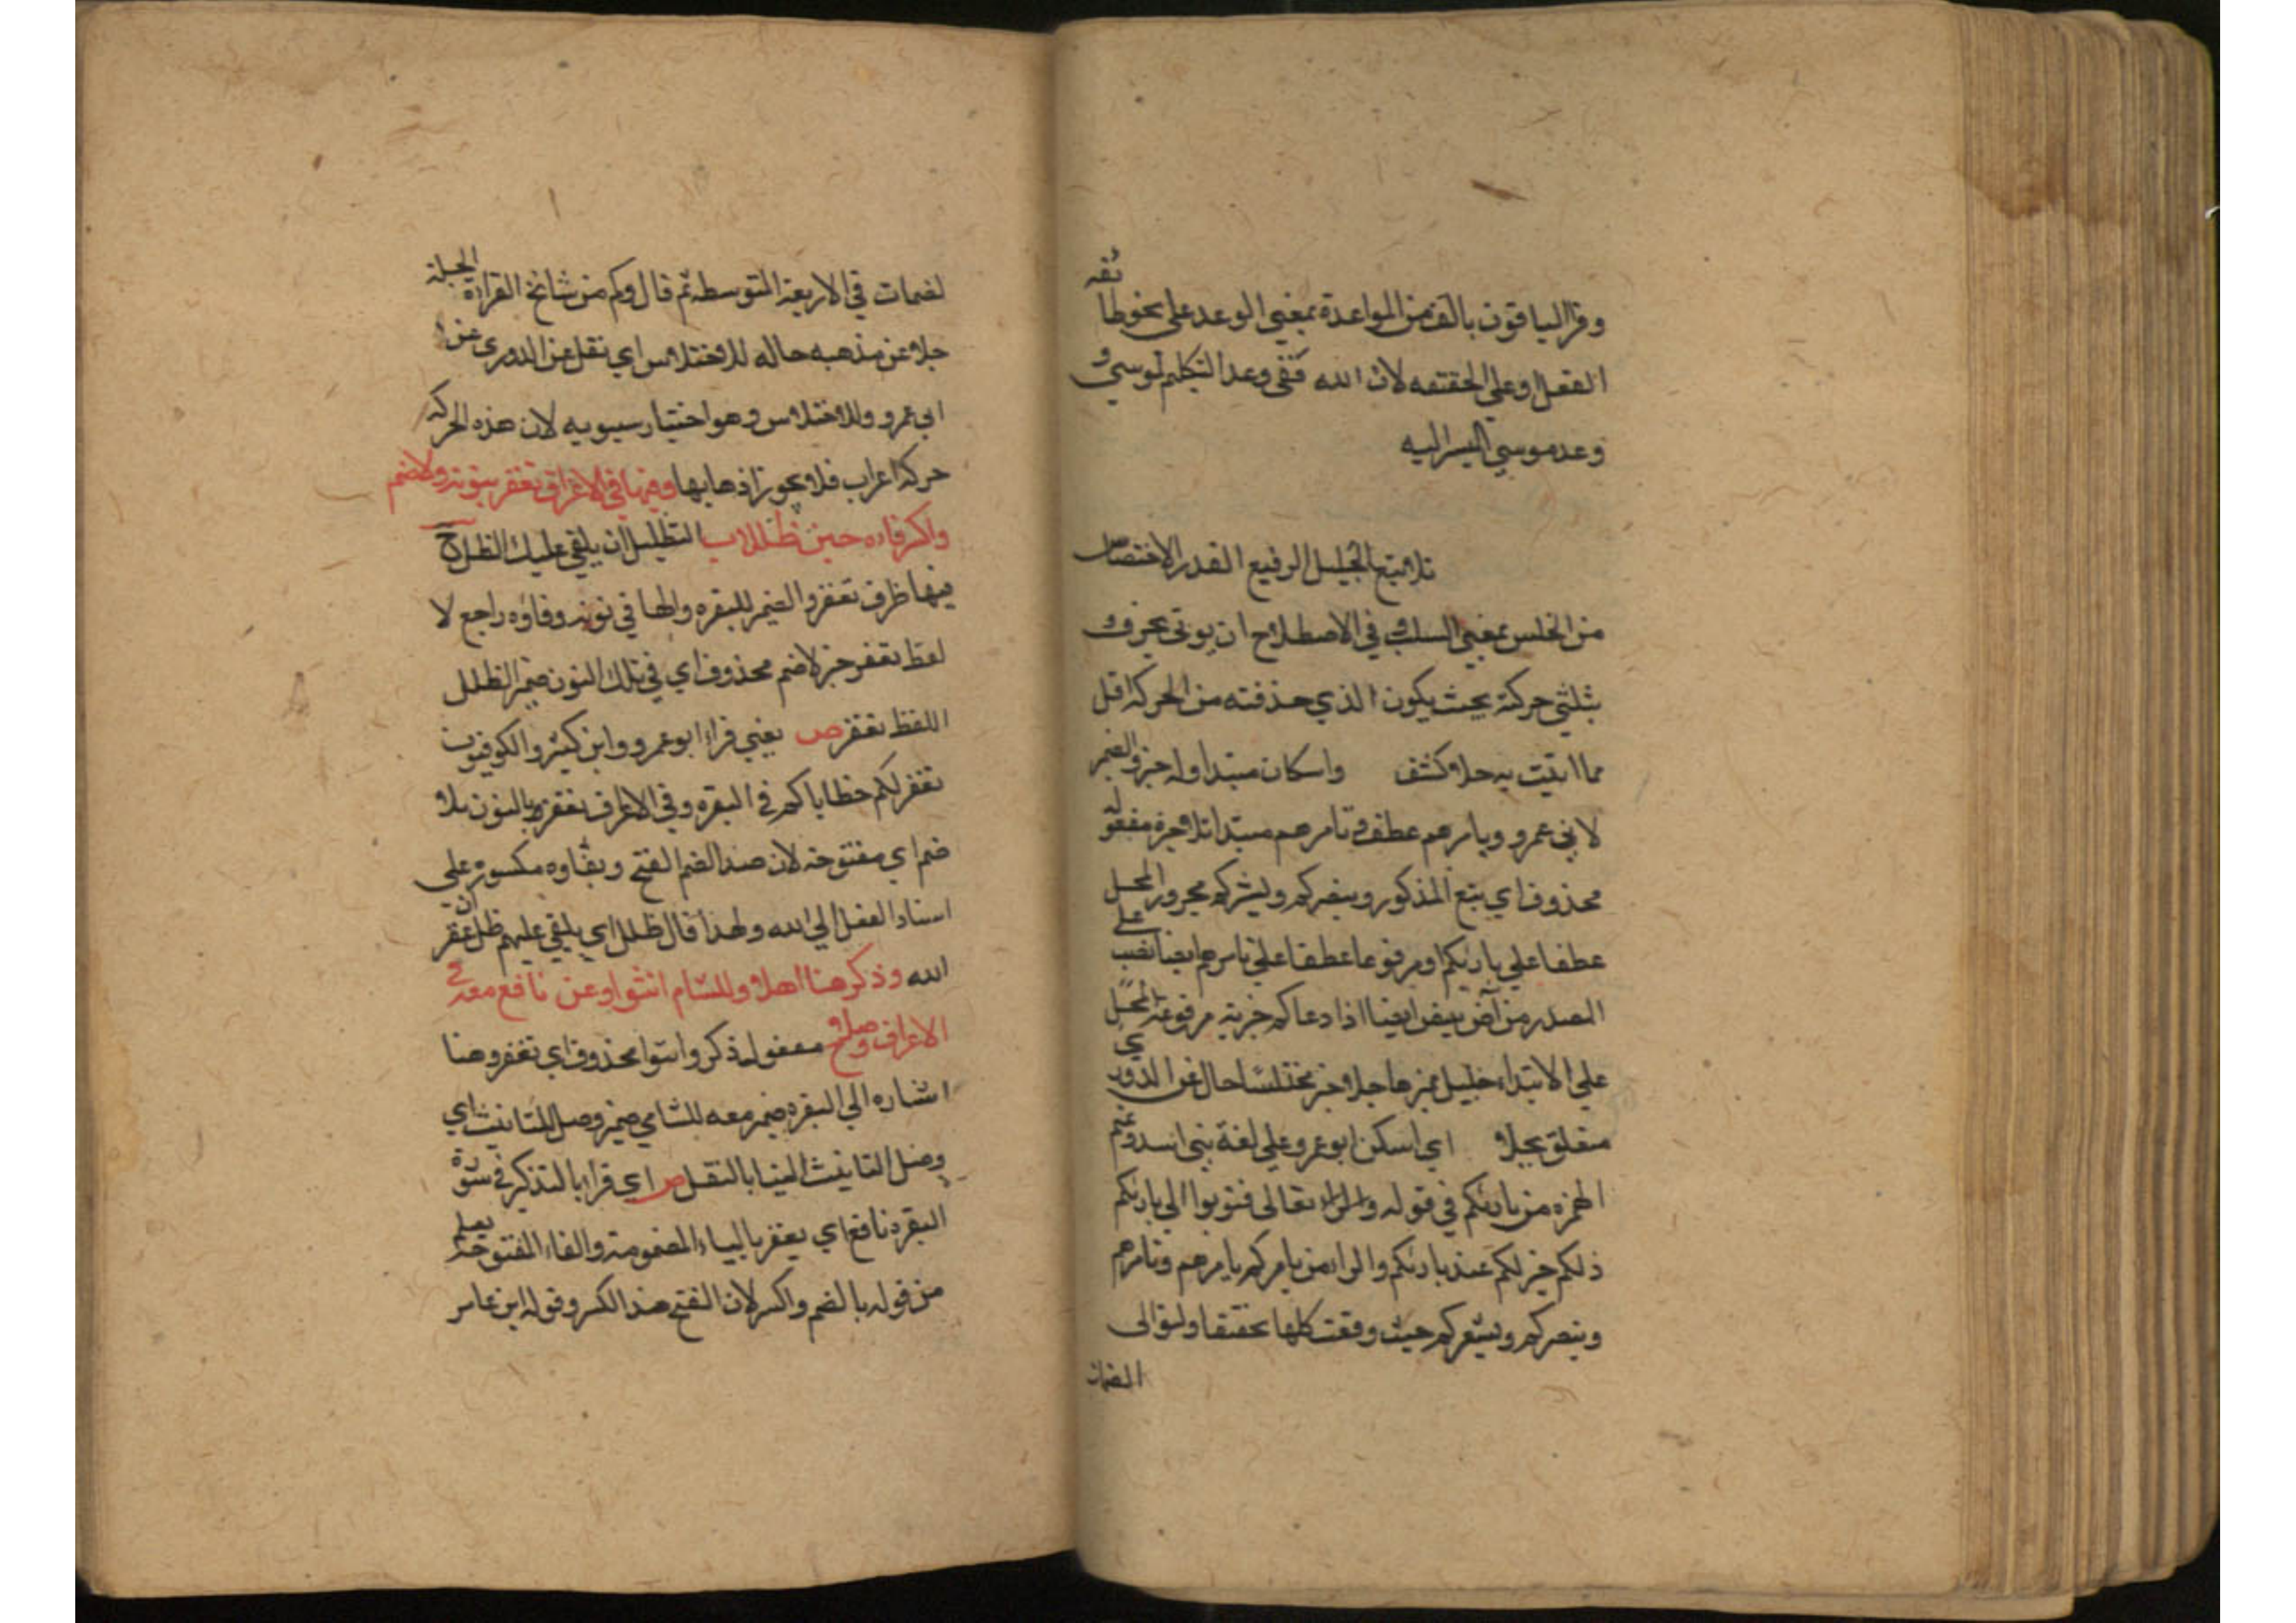 وقرا الباقون بالف من المواعدة بمعني الوعد علي نحو طا تفه
الفعل او علي الحقيقه لان الله تفي وعد التكليم لموسي و
وعد موسي السير اليه
تلا متبع الجليل الرفيع القدر الاختصاس
من الخلس بمعني السلب وفي الاصطلاح ان يوتي بحرف و
بثلثي حركته بحيث يكون الذي حذفته من الحركه اقل
مما اتيت به حلا وكشف واسكان مبتدا وله خبر والضمير
لابي عمرو ويامرهم عطف وتامرهم مبتدا تلا خبره مفعوله
محذوف اي يتبع المذكور وينصركم وليشركم مجرور المحل
عطفا علي بارئكم او مرفوعا عطفا علي تامرهم ايضا نصب علي
المصدر من آض يئيض ايضا اذا دعا كم خبريه مرفوعه المحل
علي الابتداء خليل مميزها جلا وخبر مختلسا حال عن الدوري
متعلق بجلا اي اسكن ابو عمرو علي لغة بني اسد وتميم
الهمزه من بارئكم في قوله والراء تعالى فتوبوا الي بارئكم
ذلكم خير لكم عند بارئكم والراء من يامركم يامرهم وتامرهم
وينصركم ويشعركم حيث وقعت كلها تخفيفا ولتوالى
الضمات
لضمات في الاربعة المتوسطه ثم قال وكم من شائخ القراءة الجيلة
جلا عن مذهبه حاله للاختلاس اي نقل عن الدوري عن
ابي عمرو وللاختلاس وهو اختيار سيبويه لان هذه الحركه
حركة اعراب فلا يجوز اذهابها وفيها في الاعراف تغفر بنونه ولا ضم
واكسر فاءه حين ظللا ب التظليل ان يلقي عليك الظل ح
فيها ظرف تغفر والضمير للبقره والها في نونه وفاؤه راجع لا
لفظ تغفر خبر لا ضم محذوف اي في تلك النون ضمير الظلل
اللفظ تغفر ص يعني قراء ابو عمرو وابن كثير والكوفيون
تغفر لكم خطاياكم في البقره وفي الاعراف نغفر بالنون بلا
ضم اي مفتوحه لان ضد الضم الفتح وبفاوه مكسوره علي
اسناد الفعل الي الله ولهذا قال ظلل اي يلقي عليهم ظل غفران
الله وذكر هنا اصلا وللشام انثوا وعن نافع معه في
الاعراف وصلا ح مفعول ذكر وانثوا محذوف اي تغفر وهنا
اشاره الي البقره ضمير معه للشامي ضمير وصل للتانيث اي
وصل التانيث الينا بالنقل ص اي قرا بالتذكير في سورة
البقره نافع اي يغفر بالياء المضمومة والفاء المفتوحه يعلم
من قوله بالضم واكسر لان الفتح ضد الكسر وقوله ابن عامر